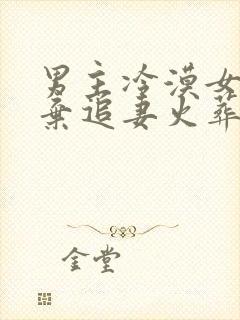 男主冷漠女
弃追妻火葬
金堂